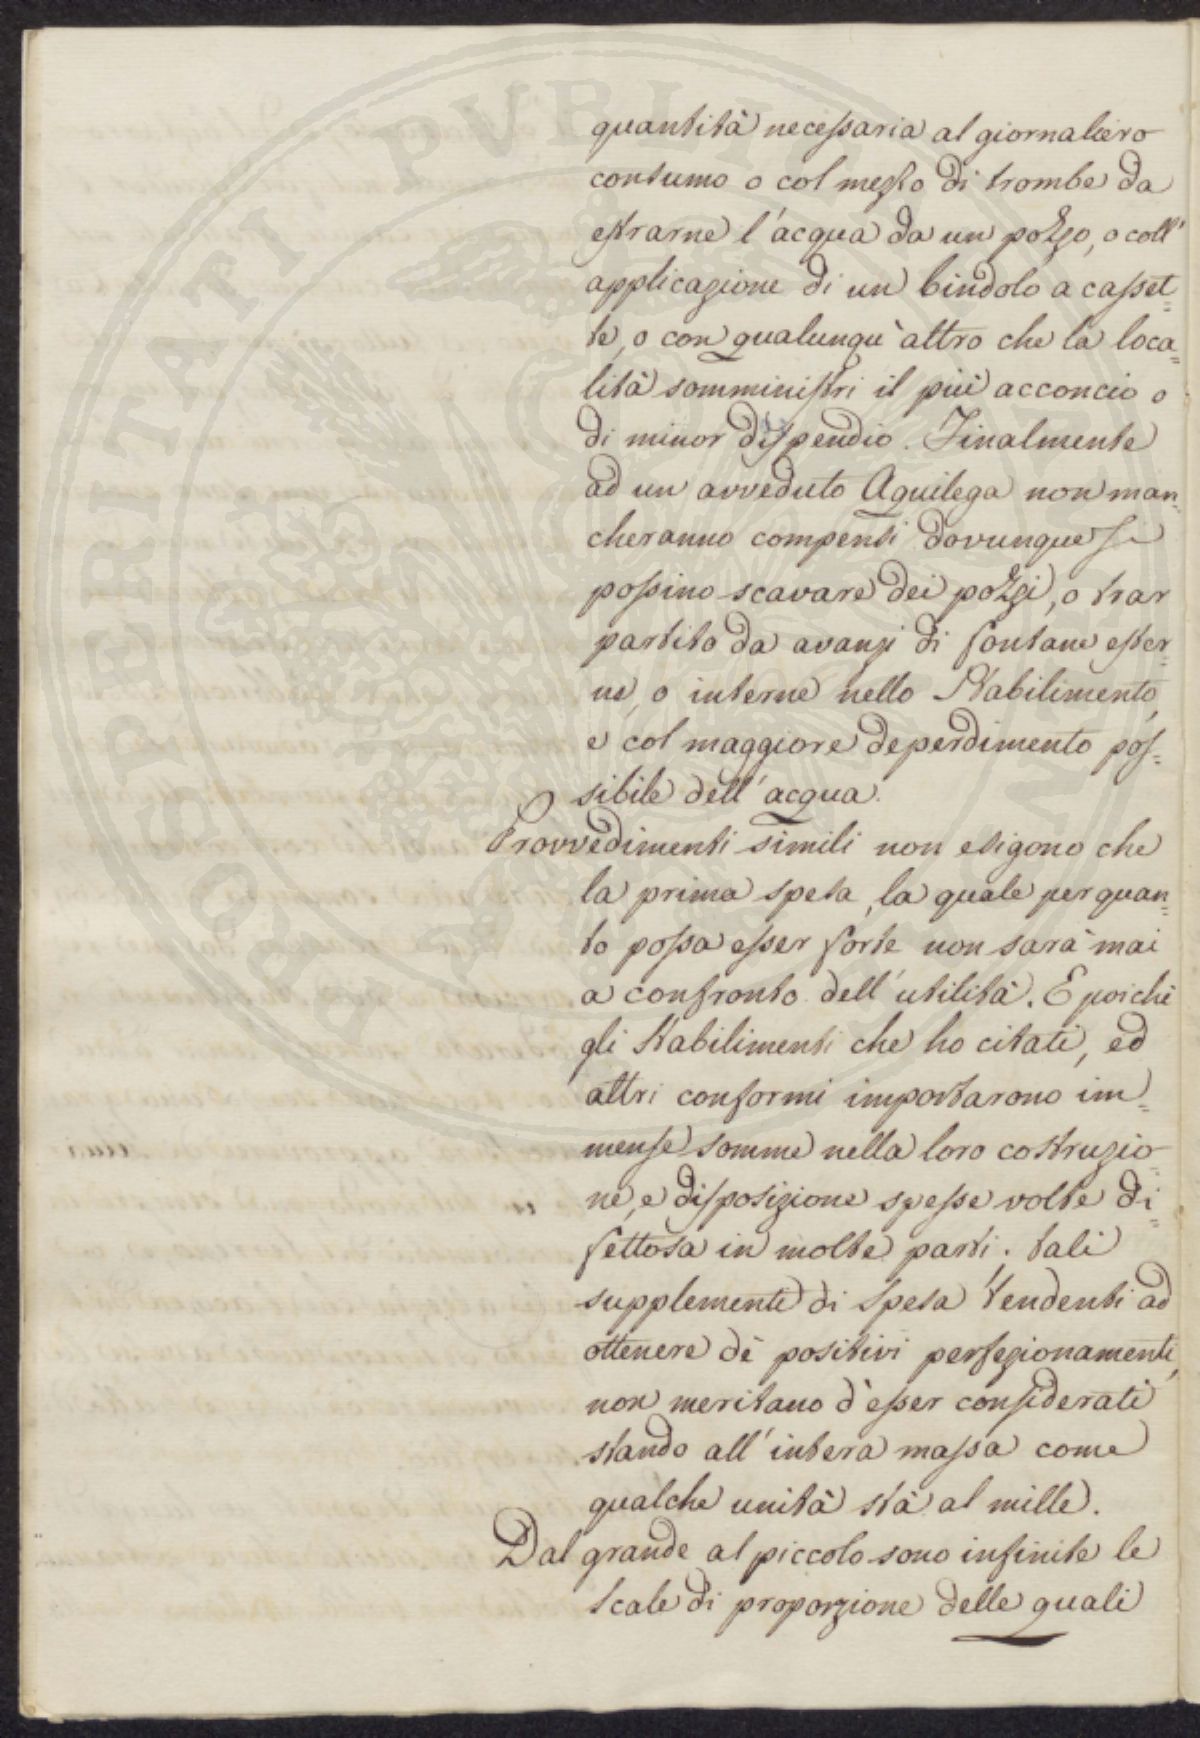 quantità necessaria al giornaliero
consumo o col mezzo di trombe da
estrarne l'acqua da un pozzo, o coll'
applicazione di un bindolo a casset=
te, o con qualunqu'altro che la loca=
lità somministri il più acconcio o
di minor dispendio. Finalmente
ad un avveduto Aquilega non man=
cheranno compensi dovunque si
possino scavare dei pozzi, o trar
partito da avanzi di fontane ester=
ne, o interne nello Stabilimento,
e col maggiore deperdimento pos=
sibile dell'acqua.
Provvedimenti simili non esigono che
la prima spesa, la quale per quan=
to possa esser forte non sarà mai
a confronto dell'utilità. E poichè
gli Stabilimenti che ho citati, ed
altri conformi importarono im=
mense somme nella loro costruzio=
ne, e disposizione spesse volte di=
fettosa in molte parti; tali
supplementi di spesa tendenti ad
ottenere de' positivi perfezionamenti,
non meritano d'esser considerati
stando all'intera massa come
qualche unità stà al mille.
Dal grande al piccolo sono infinite le
scale di proporzione delle quali
PROSPERITATI PVBLICAE